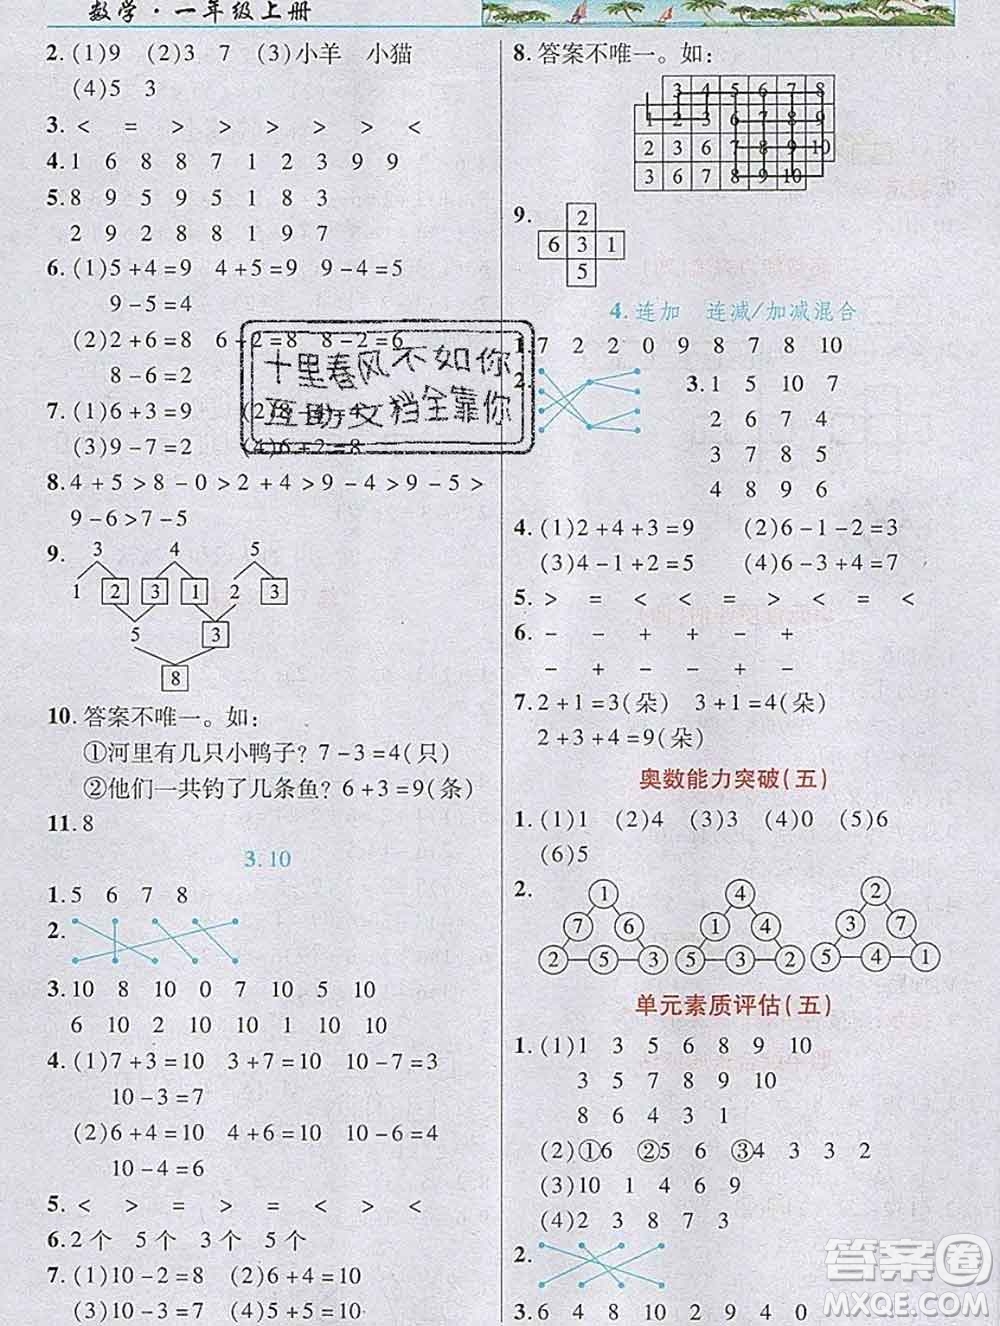 数学·一年级上册
2. (1)9 (2)3 7 (3)小羊 小猫
(4)5 3
3. < = > > > > > <
4. 1 6 8 8 7 1 2 3 9 9
5. 8 9 5 9 5 1 8 3
2 9 2 8 8 1 9 7
6. (1)5+4=9 4+5=9 9-4=5
9-5=4
(2)2+6=8 6+2=8 8-2=6
8-6=2
7. (1)6+3=9
(3)9-7=2 (4)6+2=8
十里春风不如你
互助文档全靠你
8. 4+5>8-0>2+4>9-4>9-5>
9-6>7-5
9.
3 4 5
1 2 3 1 2 3
5 3
8
10. 答案不唯一。如:
①河里有几只小鸭子? 7-3=4(只)
②他们一共钓了几条鱼? 6+3=9(条)
11. 8
3. 10
1. 5 6 7 8
2.
3. 10 8 10 0 7 10 5 10
6 10 2 10 10 10 10
4. (1)7+3=10 3+7=10 10-7=3
10-3=7
(2)6+4=10 4+6=10 10-6=4
10-4=6
5. < > > = < < >
6. 2个 5个 3个 5个
7. (1)10-2=8 (2)6+4=10
(3)10-1=9 (4)5+5=10
8. 答案不唯一。如:
3 4 5 6 7 8
1 2 3 6 7 8 9
2 3 6 7 8 9 10
3 6 7 8 9 10
9.
2
6 3 1
5
4. 连加 连减/加减混合
1. 7 2 2 0 9 8 7 8 10
2.
3. 1 5 10 7
2 6 7 4
3 7 8 5
4 8 9 6
4. (1)2+4+3=9 (2)6-1-2=3
(3)4-1+5=8 (4)6-3+4=7
5. > = < < = > < = <
6. - - - + - +
- + - - + +
7. 2+1=3(朵) 3+1=4(朵)
2+3+4=9(朵)
奥数能力突破(五)
1. (1)1 (2)4 (3)3 (4)0 (5)6
(6)5
2.
1 4 2
7 6 1 4 3 7
2 5 3 5 3 2 5 4 1
单元素质评估(五)
1. (1)1 3 5 6 8 9 10
3 5 7 8 9 10
8 6 4 3 1
(2)①6 ②5 6 ③4 3 3 2
(3)10 1 4 6 9
(4)2 3 8 7 3
2.
3. 6 4 8 10 2 9 4 0
答案圈
MXQE.COM